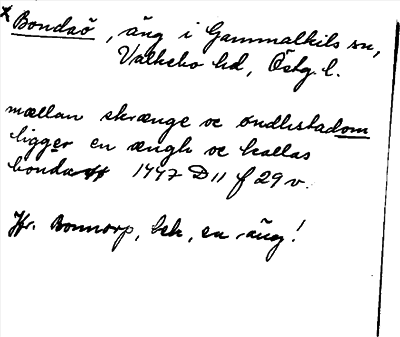 x Bondaö, äng i Gammalkils sn,
Valkebo hd, Östg. l.
mællan skrænge oc ondlistadom
ligger en ængh oc kallas
bonda 1447 D 11 f 29 v.
Jfr. Bonnorp, beb, en äng!